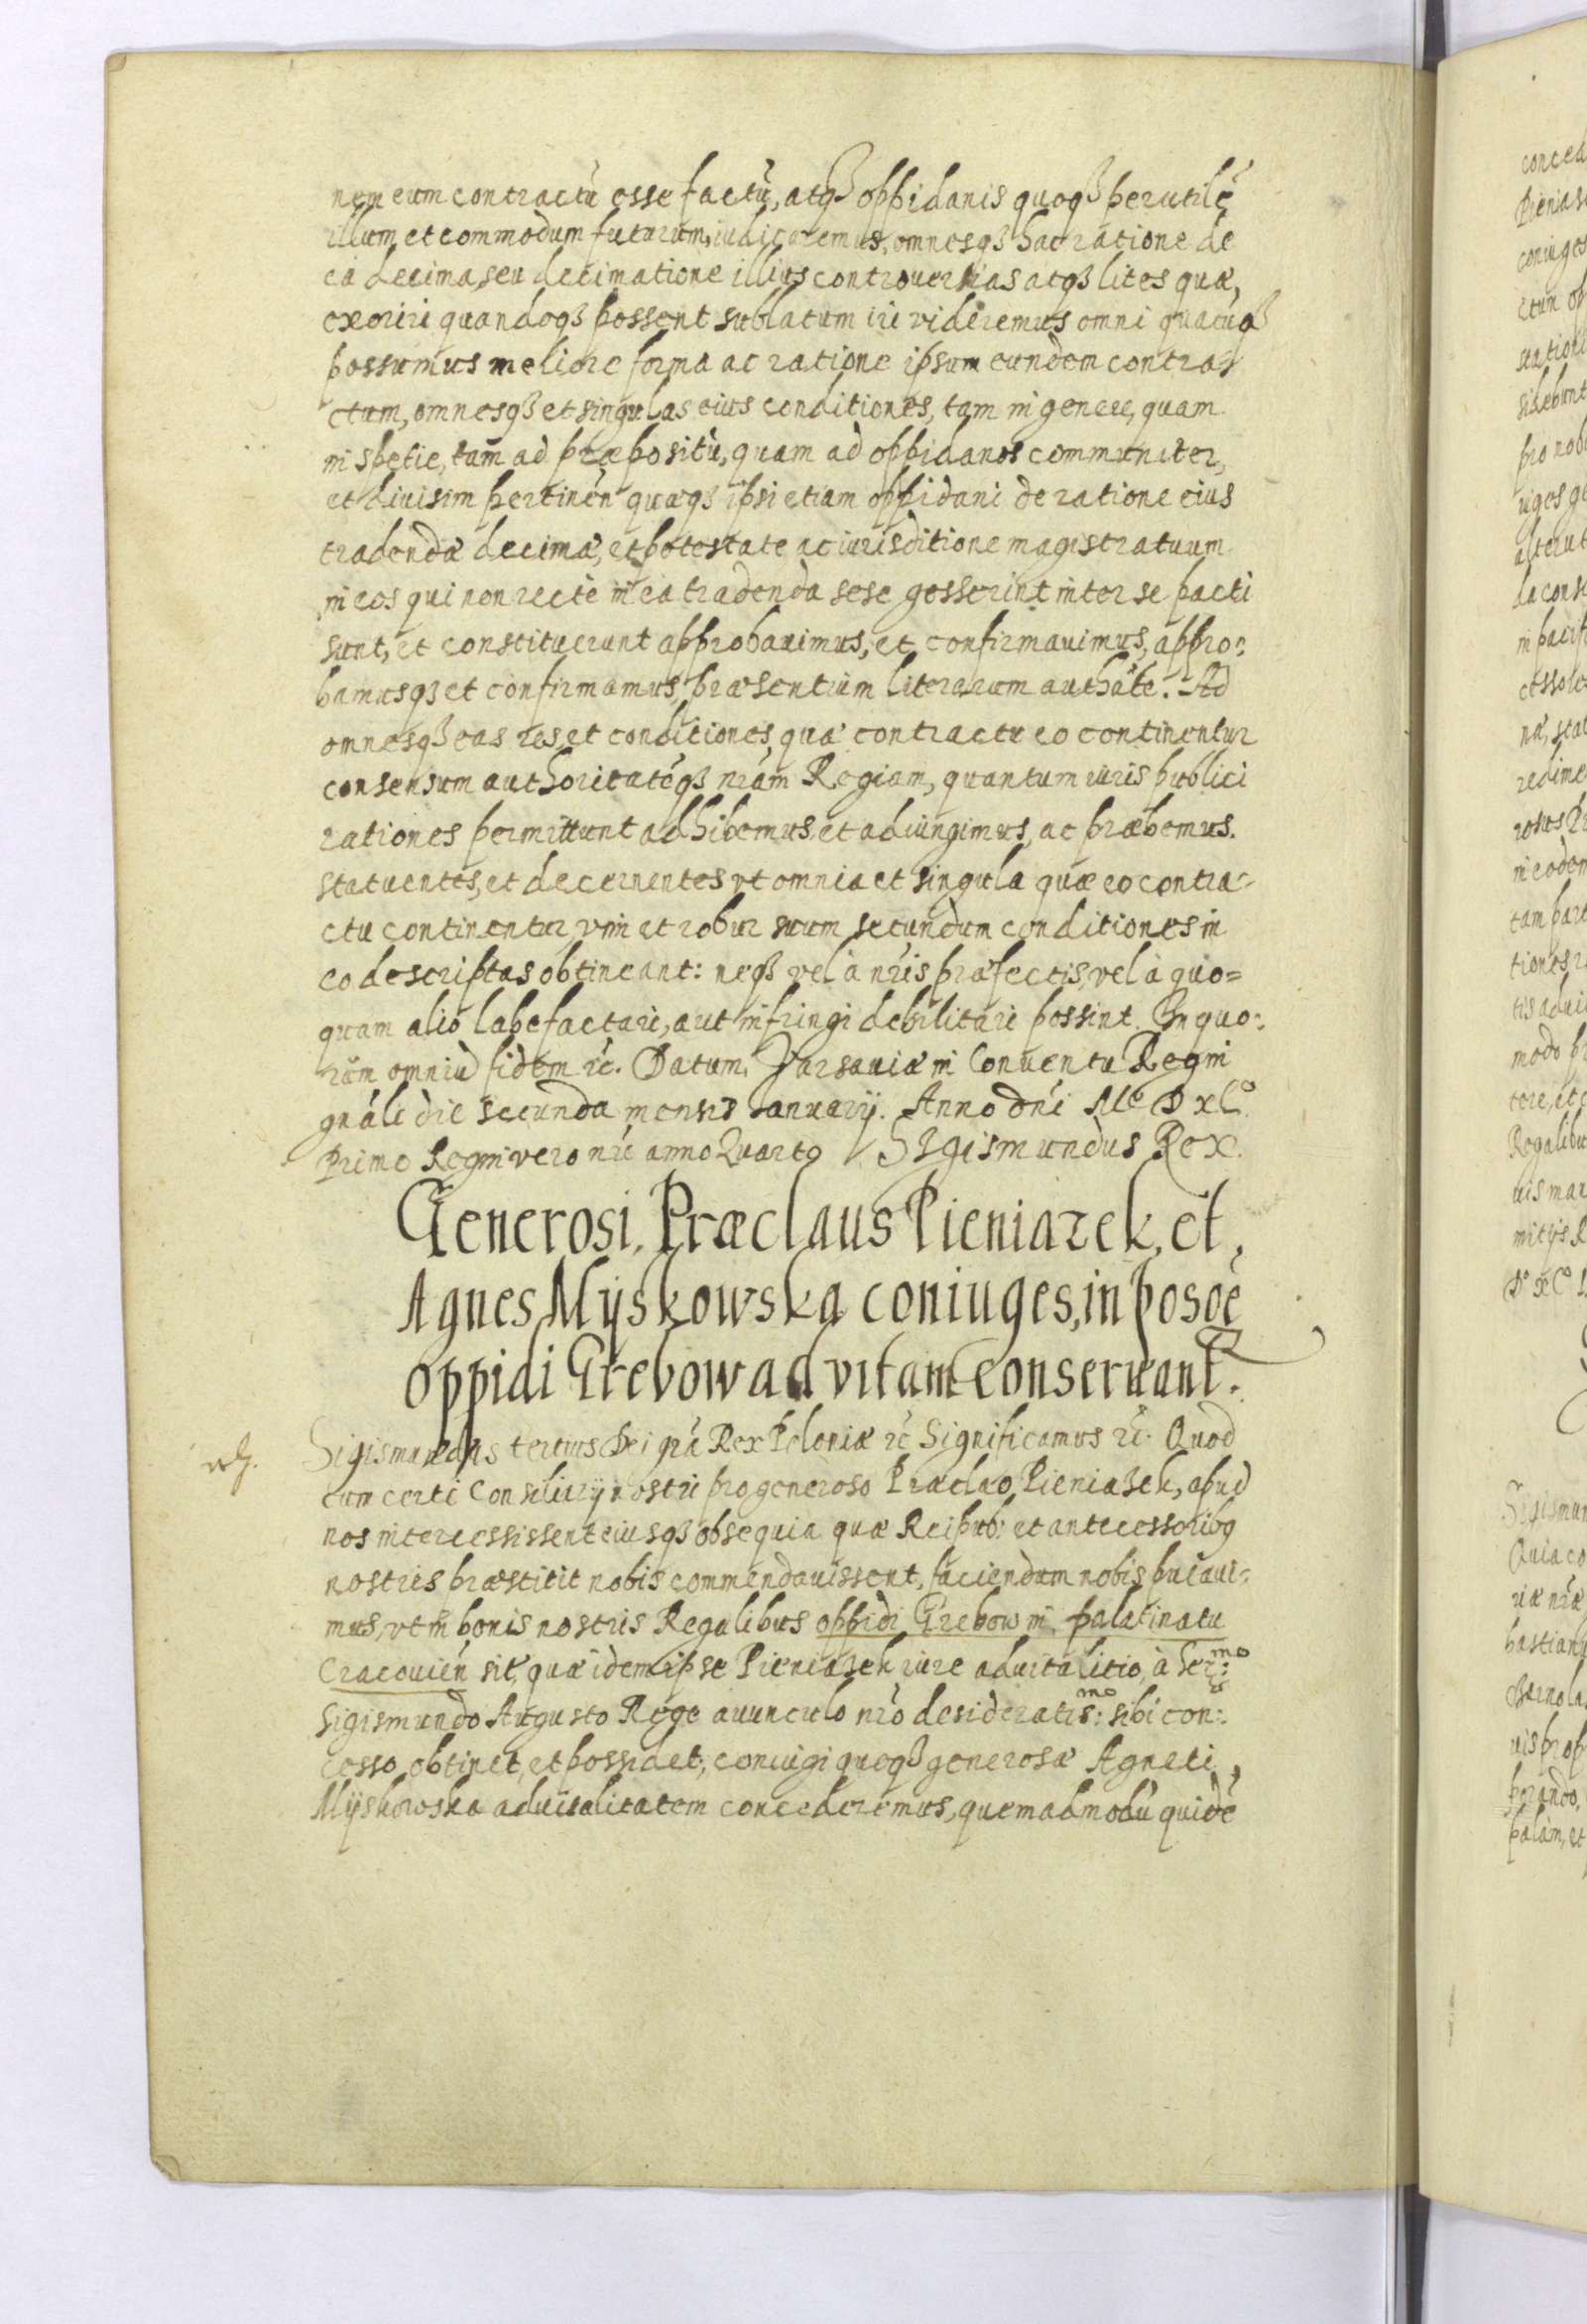 nem eum contractũ esse factũ, atqȝ oppidanis quoqȝ perutilẽ
illum et commodum futurum, iudicaremus, omnesqȝ hac ratione de
ea decima, seu decimatione illius controuersias atqȝ lites quæ,
exoriri quandoqȝ possent sublatum iri videremus omni quacũqȝ
possumus meliore forma ac ratione ipsum eundem contra-
ctum, omnesqȝ et singulas eius conditiones, tam in genere, quam
in spetie, tam ad præpositũ, quam ad oppidanos communiter,
et diuisim pertinen̄ quæqȝ ipsi etiam oppidani de ratione eius
tradendæ decimæ, et potestate ac iurisditione magistratuum
in eos qui non recte in ea tradenda sese gesserint inter se pacti
sunt, et constituerunt approbauimus, et confirmauimus, appro:
bamusqȝ et confirmamus, præsentium literarum authãte. Ad
omnesqȝ eas res, et conditiones, quæ contractu eo continentur
consensum authoritatẽqȝ nr̃am Regiam, quantum iuris publici
rationes permittunt adhibemus, et adiungimus, ac præbemus.
statuentes, et decernentes vt omnia et singula quæ eo contra-
ctu continentur vim et robur suum secundum conditiones in
eo descriptas obtineant: neqȝ vel à nr̃is præfectis, vel à quo=
quam alio labefactari, aut infringi debilitari possint. In quo:
rũm omniũ fidem rc̃. Datum Varsauiæ in Conuentu Regni
gnãli die secunda mensis Ianuarij. Anno dñi Mº D xCº
Primo Regni vero nr̃i anno Quarto Sigismundus Rex.
Generosi, Præclaus Pieniazek, et,
Agnes Myskowska coniuges, in posõe
oppidi Grebow ad vitam conseruant.
Sigismundus tertius Dei gr̃a Rex Poloniæ rc̃ Significamus rc̃. Quod
cum certi Consiliarij nostri pro generoso Præclao Pieniazek, apud
nos intercessissent eiusqȝ obsequia quæ Reipub: et antecessoribq
nostris præstitit nobis commendauissent, faciendum nobis putaui:
mus, vt in bonis nostris Regalibus oppidi Grebow in palatinatu
Cracouien̄ sit, quæ idem ipse Pieniazek iure aduitalitio, à Ser:mo
Sigismundo Augusto Rege auunculo nr̃o desideratis:mo sibi con:
cesso obtinet, et possidet, coniugi quoqȝ generosæ Agneti,
Myskowska aduitalitatem concederemus, quemadmodũ quidẽ